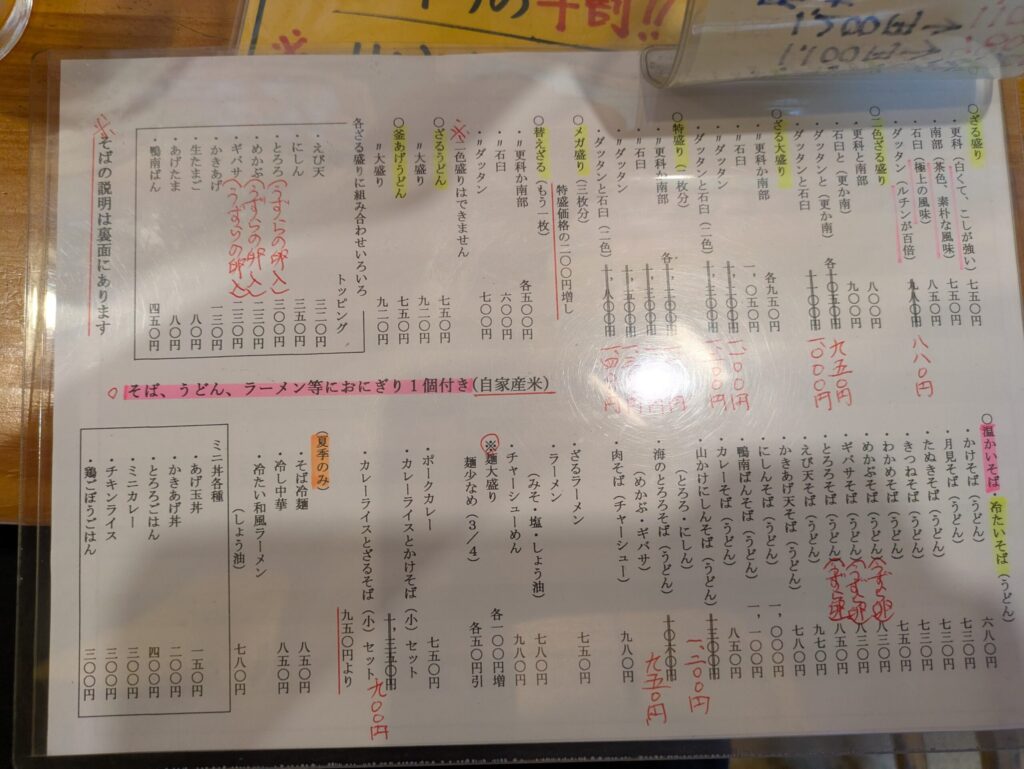 ○ざる盛り
・更科（白くて、こしが強い） 七五〇円
・南部（茶色、素朴な風味） 七五〇円
・石臼（極上の風味） 八五〇円
・ダッタン（ルチンが百倍） 九八〇円 八八〇円
○二色ざる盛り
・更科と南部 八〇〇円
・石臼と（更か南） 九〇〇円
・ダッタンと（更か南） 各一、〇五〇円 九五〇円
・ダッタンと石臼 一〇〇〇円
○ざる大盛り
・〃更科か南部 各九五〇円
・〃石臼 一、〇五〇円
・〃ダッタン
・ダッタンと石臼（二色）
○特盛り（二枚分）
・〃更科か南部
・〃石臼
・〃ダッタン
・ダッタンと石臼（二色）
○メガ盛り（三枚分）
特盛価格の二〇〇円増し
○替えざる（もう一枚）
・〃更科か南部 各五〇〇円
・〃石臼 六〇〇円
・〃ダッタン 七〇〇円
※二色盛りはできません
○ざるうどん 七五〇円
・〃大盛り 九二〇円
○釜あげうどん 七五〇円
・〃大盛り 九二〇円
各ざる盛りに組み合わせいろいろ
トッピング
・えび天 三二〇円
・にしん 三五〇円
・とろろ（うずらの卵入） 三〇〇円
・めかぶ（うずらの卵入） 二三〇円
・ギバサ（うずらの卵入） 二三〇円
・かきあげ 一三〇円
・生たまご 八〇円
・あげたま 八〇円
・鴨南ばん 四五〇円
※そばの説明は裏面にあります
○そば、うどん、ラーメン等におにぎり1個付き（自家産米）
○温かいそば・冷たいそば（うどん）
・かけそば（うどん） 六八〇円
・月見そば（うどん） 七三〇円
・たぬきそば（うどん） 七三〇円
・きつねそば（うどん） 七三〇円
・わかめそば（うどん） 七五〇円
・めかぶそば（うどん）（うずら卵） 八三〇円
・ギバサそば（うどん）（うずら卵） 八三〇円
・とろろそば（うどん）（うずら卵） 八五〇円
・えび天そば（うどん） 九七〇円
・かきあげ天そば（うどん） 七八〇円
・にしんそば（うどん） 一、〇〇〇円
・鴨南ばんそば（うどん） 一、一〇〇円
・カレーそば（うどん） 八五〇円
・山かけにしんそば（うどん） 一、二〇〇円
（とろろ・にしん）
・海のとろろそば（うどん） 九五〇円
（めかぶ・ギバサ）
・肉そば（チャーシュー） 九八〇円
・ざるラーメン 七五〇円
・ラーメン 七八〇円
（みそ・塩・しょう油）
・チャーシューめん 九八〇円
※麺大盛り 各一〇〇円増
麺少なめ（3/4） 各五〇円引
・ポークカレー 七五〇円
・カレーライスとかけそば（小）セット 九〇〇円
・カレーライスとざるそば（小）セット
九五〇円より
（夏季のみ）
・そば冷麺 八五〇円
・冷し中華 八五〇円
・冷たい和風ラーメン
（しょう油） 七八〇円
ミニ丼各種
・あげ玉丼 一五〇円
・かきあげ丼 二〇〇円
・とろろごはん 四〇〇円
・ミニカレー 三〇〇円
・チキンライス 三〇〇円
・鶏ごぼうごはん 三〇〇円